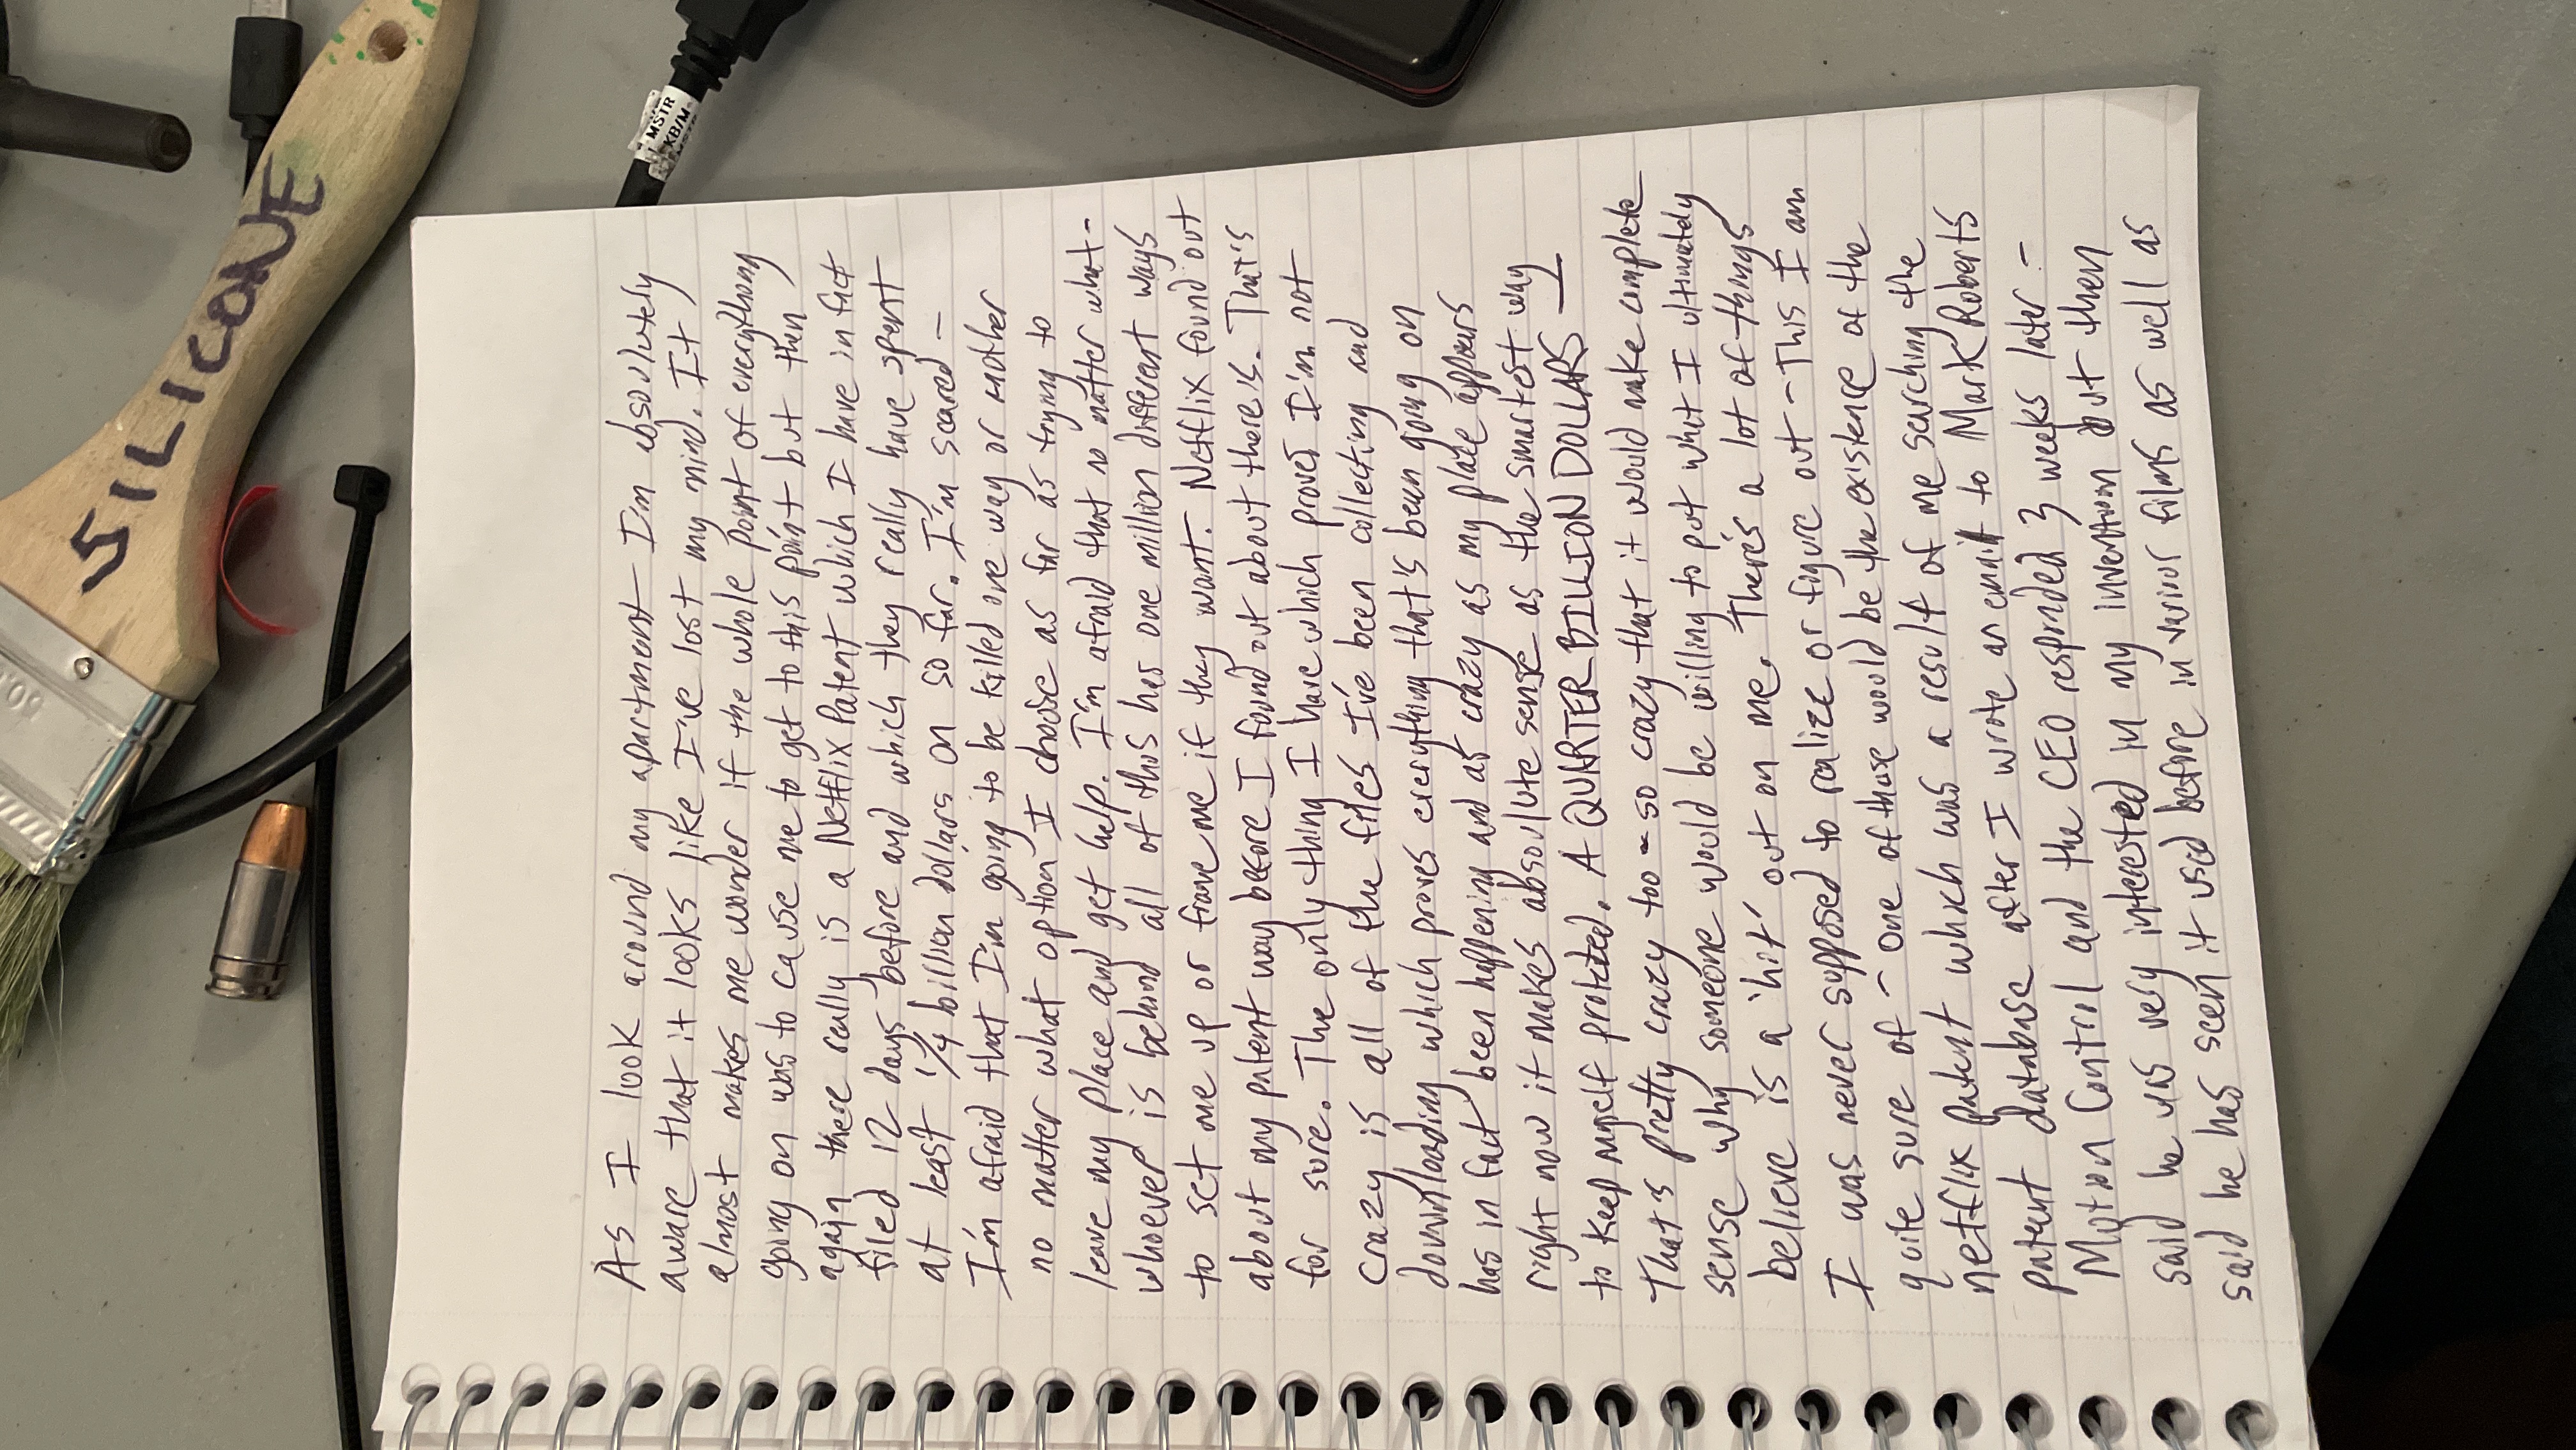 SILICONE
MSTR
KB/M
As I look around my apartment I'm absoulutely
aware that it looks like I've lost my mind. It
almost makes me wonder if the whole point of everything
going on was to cause me to get to this point but then
again there really is a Netflix Patent which I have in fact
filed 12 days before and which they really have spent
at least 1/4 billion dollars on so far. I'm scared -
I'm afraid that I'm going to be killed one way or another
no matter what option I choose as far as trying to
leave my place and get help. I'm afraid that no matter what -
whoever is behind all of this has one million different ways
to set me up or frame me if they want. Netflix found out
about my patent way before I found out about theirs. That's
for sure. The only thing I have which proves I'm not
crazy is all of the files I've been collecting and
downloading which proves everything that's been going on
has in fact been happening and as crazy as my place appears
right now it makes absoulute sense as the smartest way
to keep myself protected. A QUARTER BILLION DOLLARS -!
That's pretty crazy too - so crazy that it would make complete
sense why someone would be willing to put what I ultimately
believe is a 'hit' out on me. There's a lot of things
I was never supposed to realize or figure out - This I am
quite sure of - one of those would be the existence of the
netflix patent which was a result of me searching the
patent database after I wrote an email to Mark Roberts
Motion Control and the CEO responded 3 weeks later -
said he was very interested in my invention but then
said he has seen it used before in prior films as well as